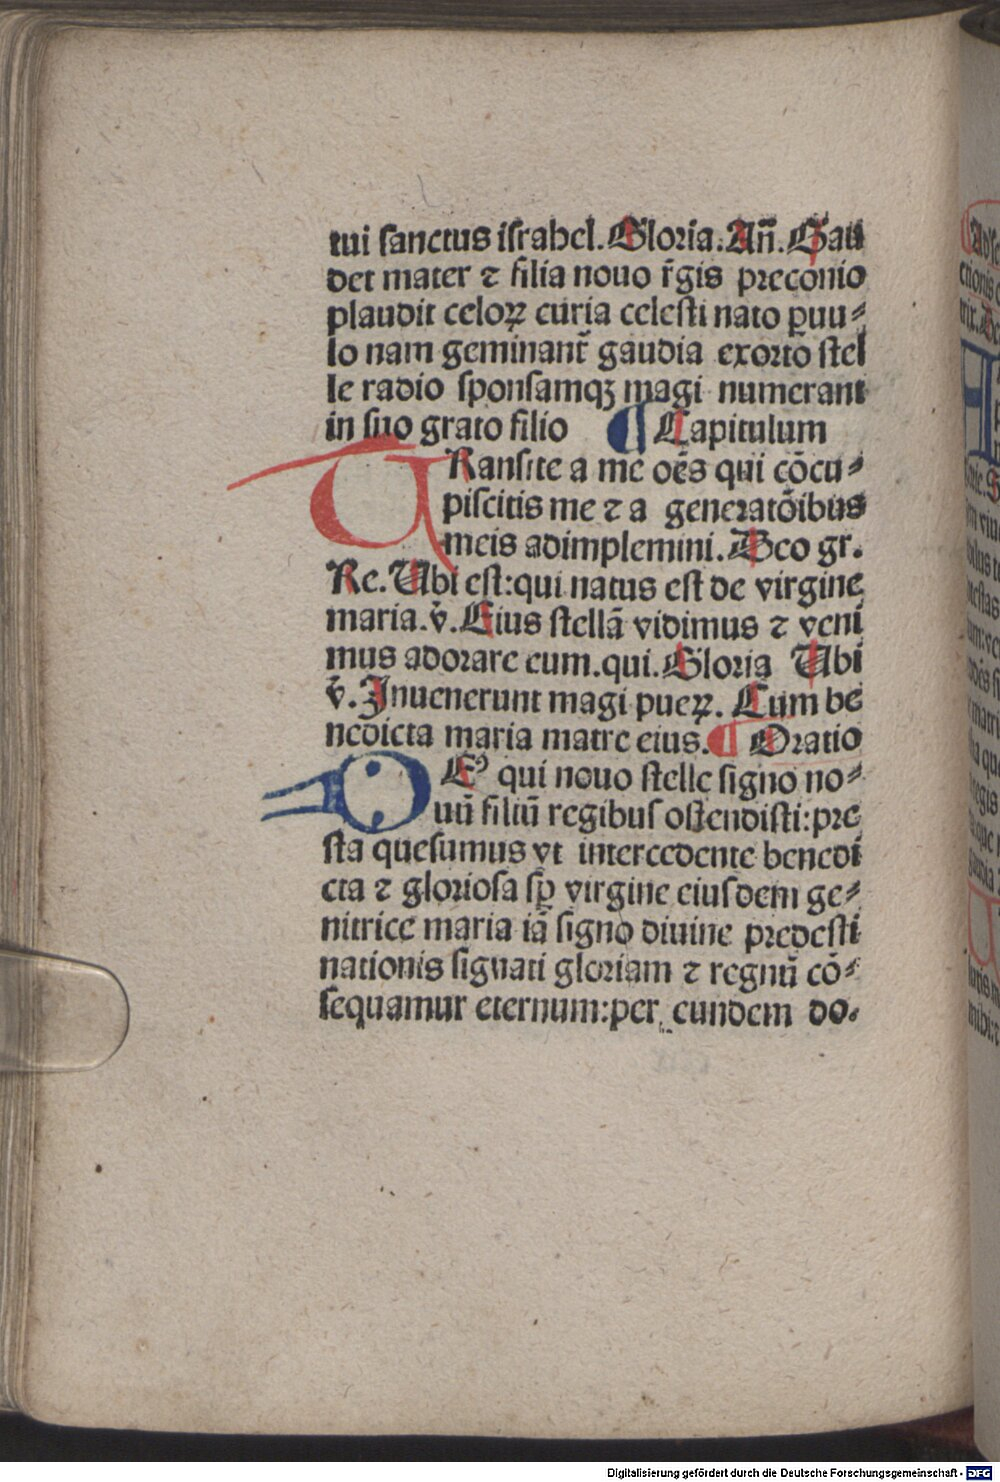 tui sanctus israhel. Gloria. Añ. Gau
det mater ⁊ filia nouo r̄gis preconio
plaudit celoꝝ curia celesti nato ꝑuu⸗
lo nam geminant᷑ gaudia exorto stel
le radio sponsamqꝫ magi numerant
in suo grato filio ¶ Capitulum
TRansite a me oēs qui cōcu⸗
piscitis me ⁊ a generatōibus
meis adimplemini. Deo gr.
Re. Ubi est: qui natus est de virgine
maria. v̄. Eius stellā vidimus ⁊ veni
mus adorare eum. qui. Gloria Ubi
v̄. Inuenerunt magi pueꝝ. Cum be
nedicta maria matre eius. ¶ Oratio
DEꝰ qui nouo stelle signo no⸗
uū filiū regibus ostendisti: pre
sta quesumus vt intercedente benedi
cta ⁊ gloriosa sꝑ virgine eiusdem ge⸗
nitrice maria iā signo diuine predesti
nationis signati gloriam ⁊ regnū cō⸗
sequamur eternum: per eundem do.
Digitalisierung gefördert durch die Deutsche Forschungsgemeinschaft - DFG